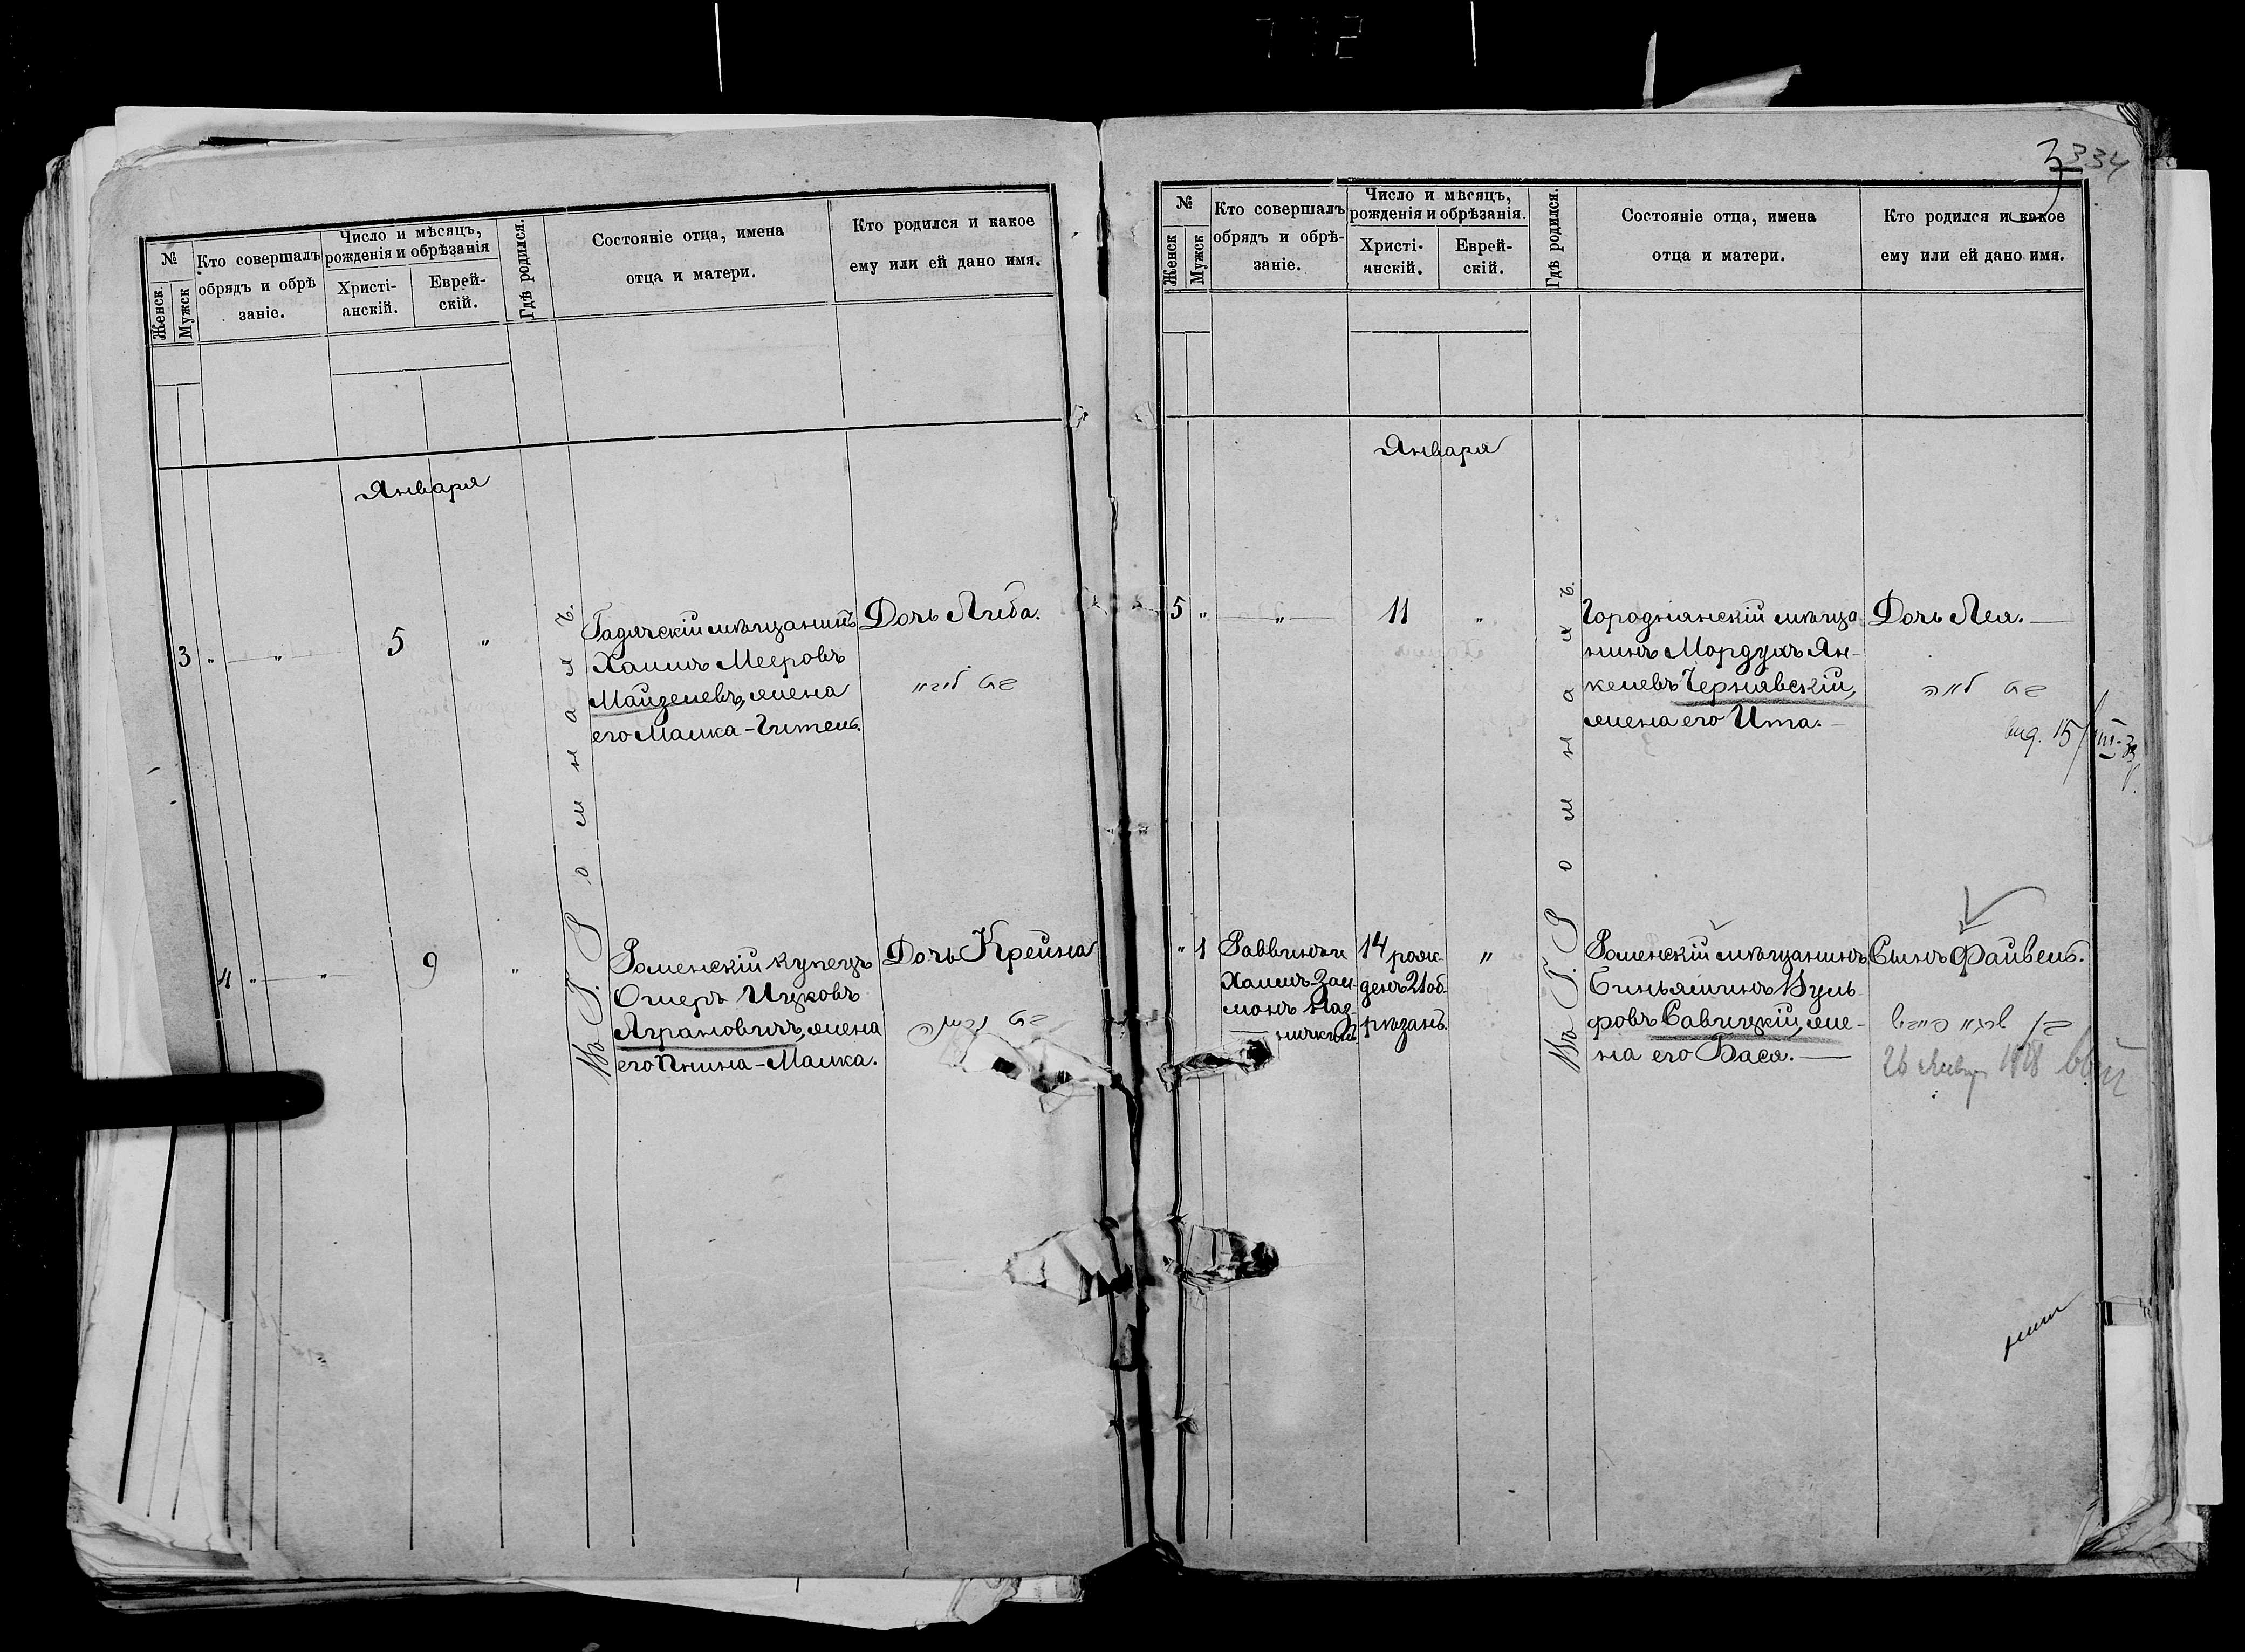 772
№
Женск.
Мужск
Кто совершалъ
обрядъ и обрѣ
заніе.
Число и мѣсяцъ,
рожденія и обрѣзанія
Христі-
анскій.
Еврей-
скій.
Гдѣ родился.
Состояніе отца, имена
отца и матери.
Кто родился и какое
ему или ей дано имя.
Января
3 " " 5 "
Въ Г. Ромнахъ.
Гадячскій мѣщанинъ
Хаимъ Мееровъ
Майзелевъ, жена
его Малка-Гитель.
Дочь Либа.
4 " " 9 "
Роменскій купецъ
Ошеръ Ицковъ
Аграновичъ, жена
его Пнина-Малка.
Дочь Крейна
3
334
№
Женск
Мужск
Кто совершалъ
обрядъ и обрѣ-
заніе.
Число и мѣсяцъ,
рожденія и обрѣзанія.
Христі-
анскій.
Еврей-
скій.
Гдѣ родился.
Состояніе отца, имена
отца и матери.
Кто родился и какое
ему или ей дано имя.
Января
5 " " 11 "
Въ Г. Ромнахъ.
Городнянскій мѣща
нинъ Мордухъ Ян-
келевъ Чернявскій,
жена его Ита.
Дочь Лея.
" 1
Раввинъ и
Хаимъ-Зал-
монъ
14 рож-
денъ 21 об-
рѣзанъ.
"
Роменскій мѣщанинъ
Биньяминъ Вуль-
фовъ Савицкій, же-
на его Бася.
Сынъ Файвель.